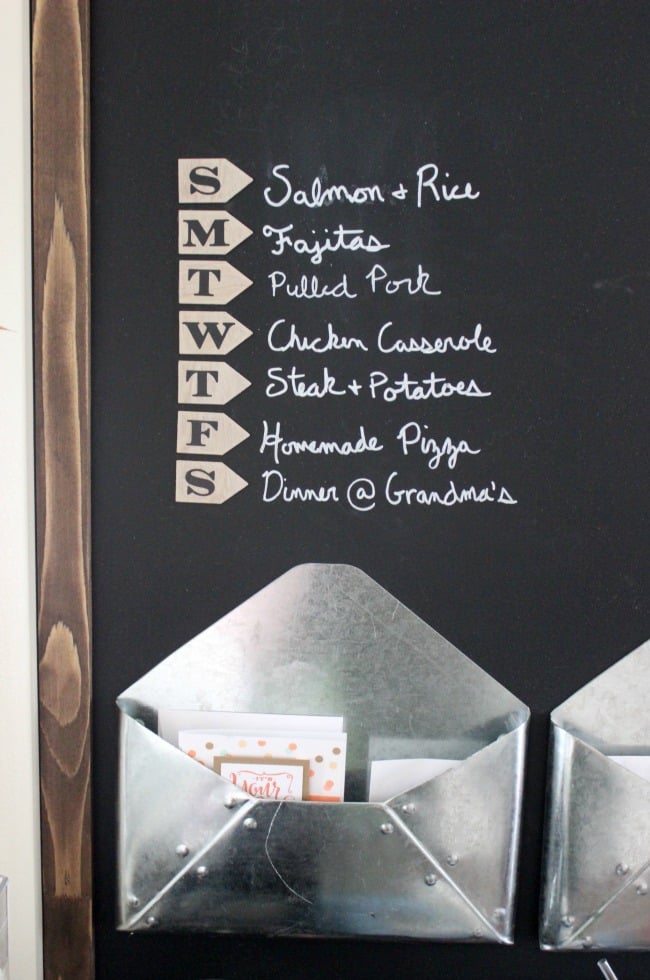 S Salmon + Rice
M Fajitas
T Pulled Pork
W Chicken Casserole
T Steak + Potatoes
F Homemade Pizza
S Dinner @ Grandma's
IT'S
Your